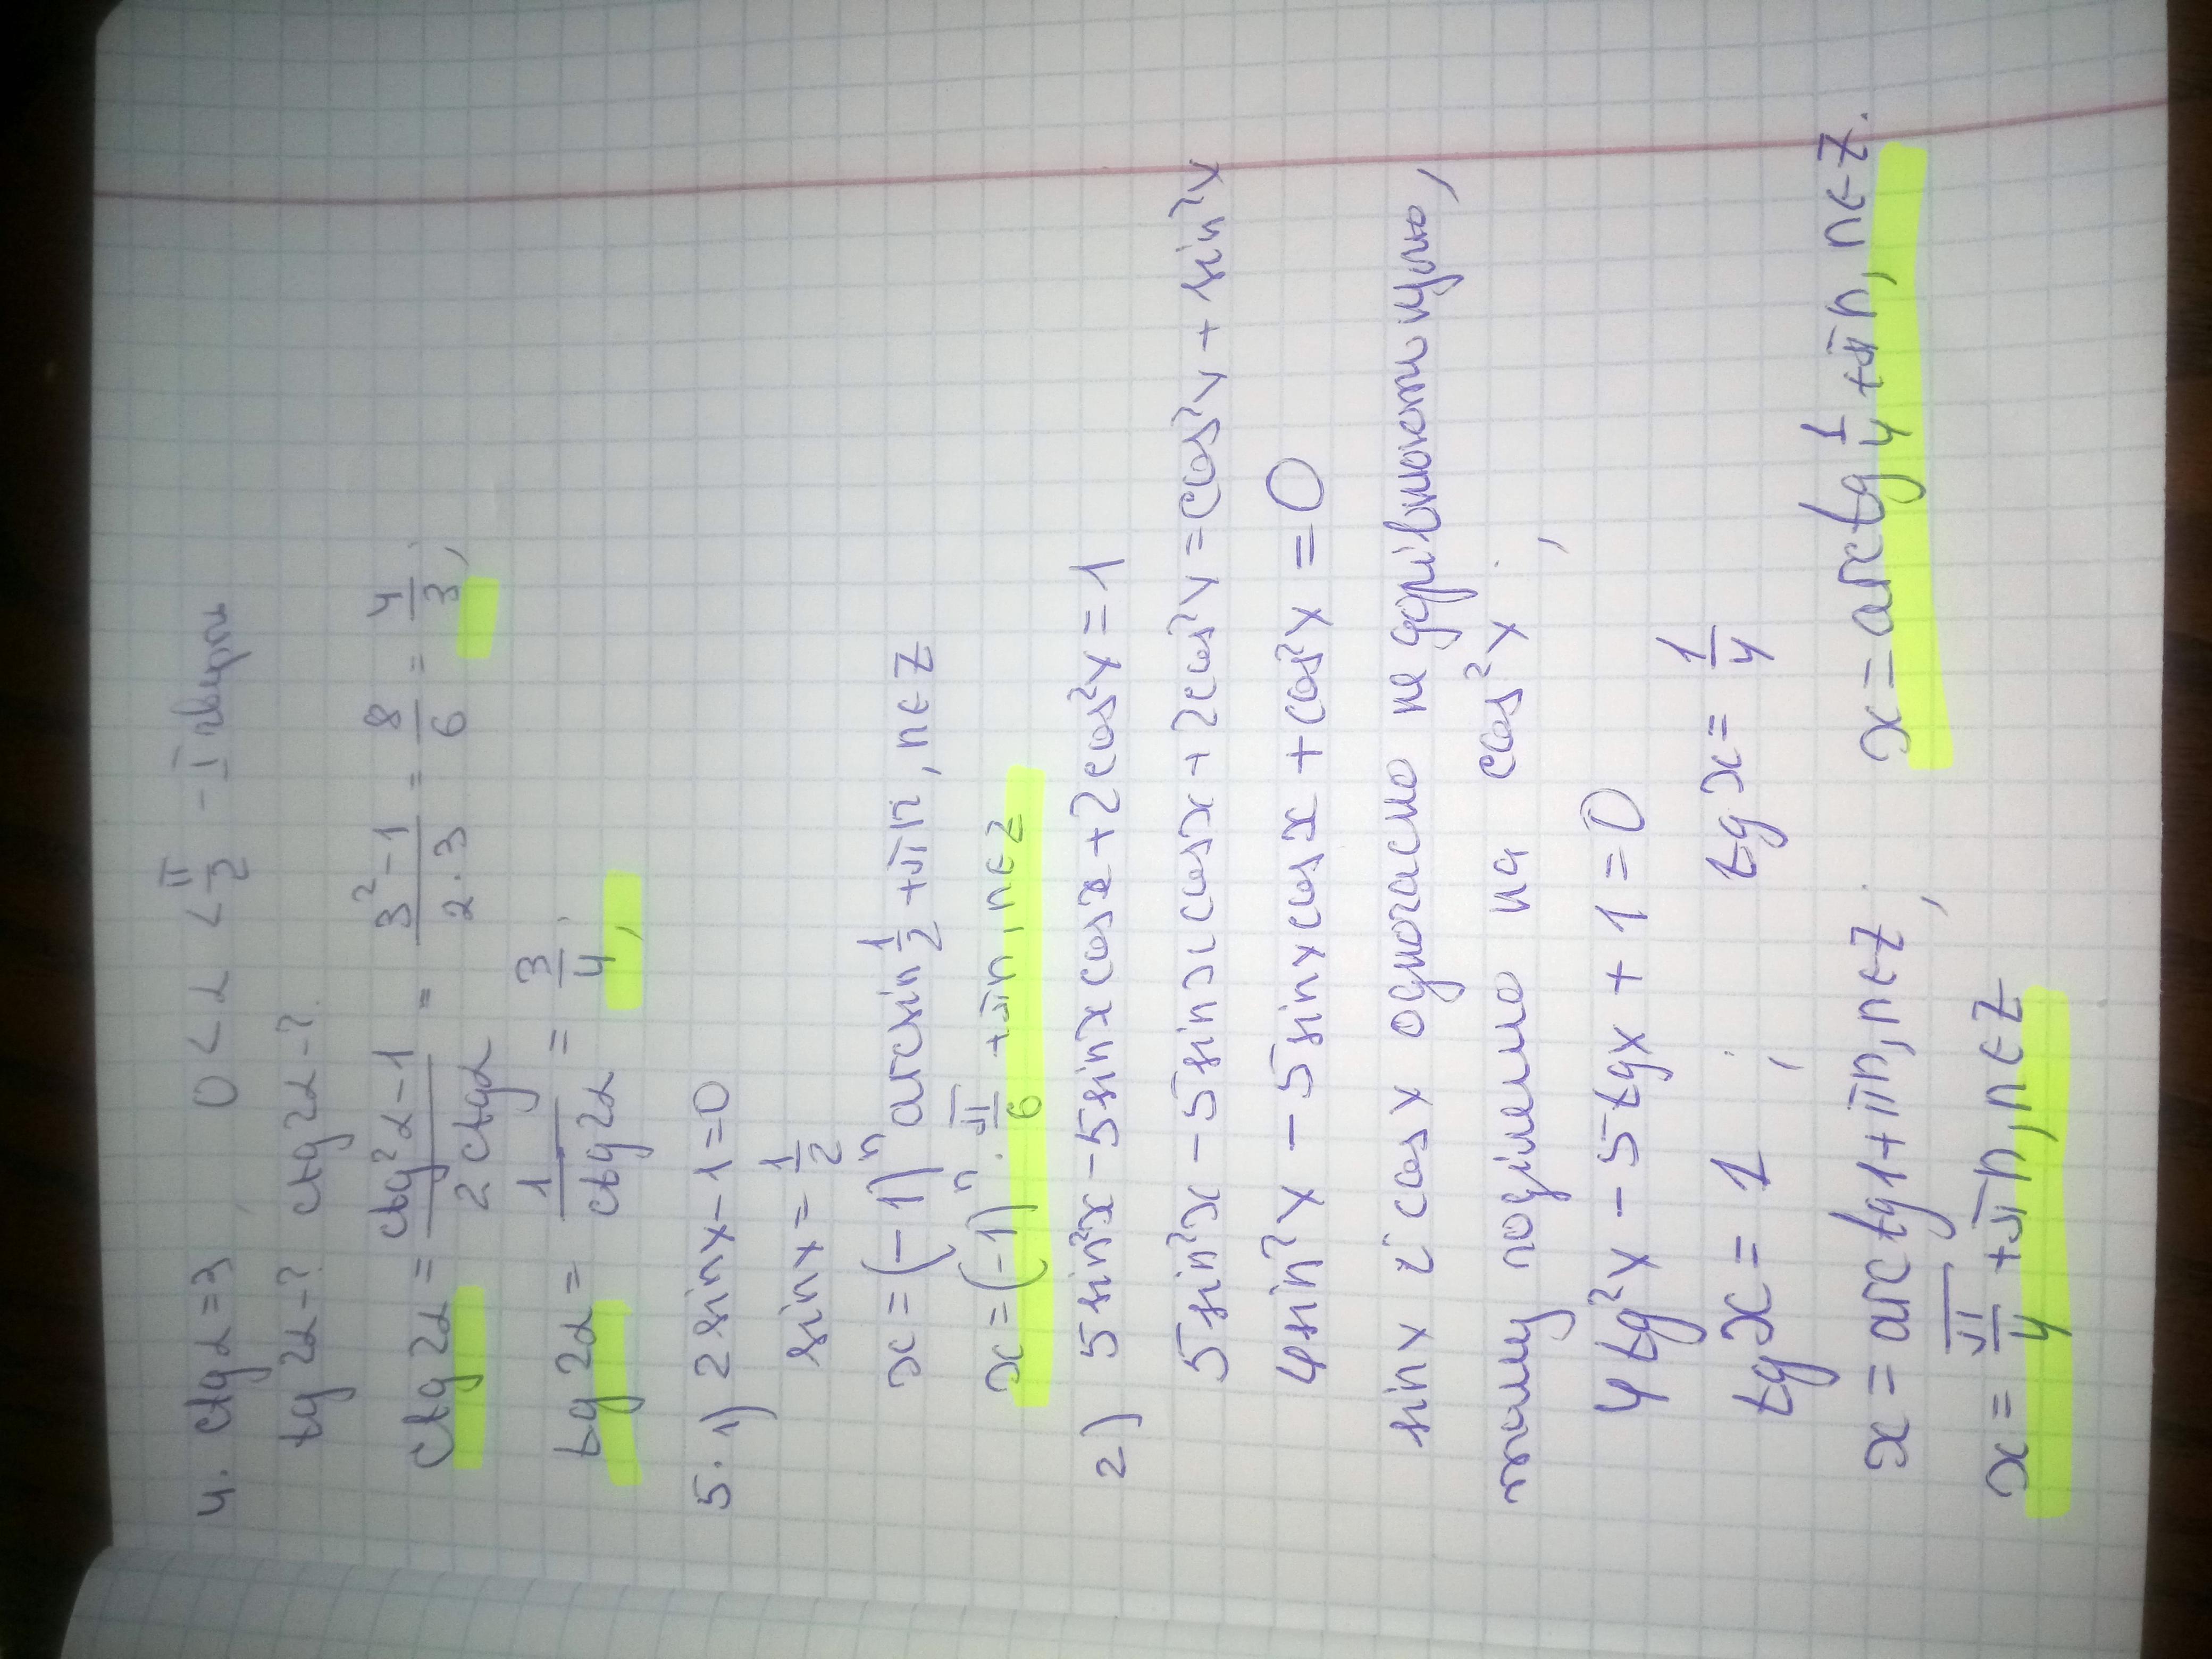 4. ctgα = 3, 0 < α < π/2 - I чверть
tg 2α - ? ctg 2α - ?
ctg 2α = (ctg²α - 1)/(2 ctgα) = (3² - 1)/(2 · 3) = 8/6 = 4/3,
tg 2α = 1/(ctg 2α) = 3/4,
5. 1) 2 sinx - 1 = 0
sinx = 1/2
x = (-1)ⁿ arcsin 1/2 + πn, n∈Z
x = (-1)ⁿ · π/6 + πn, n∈Z
2) 5 sin²x - 5 sinx cosx + 2 cos²x = 1
5 sin²x - 5 sinx cosx + 2 cos²x = cos²x + sin²x
4 sin²x - 5 sinx cosx + cos²x = 0
sinx і cosx одночасно не дорівнюють нулю,
тому поділимо на cos²x;
4 tg²x - 5 tgx + 1 = 0
tg x = 1; tg x = 1/4
x = arctg 1 + πn, n∈Z; x = arctg 1/4 + πn, n∈Z.
x = π/4 + πn, n∈Z